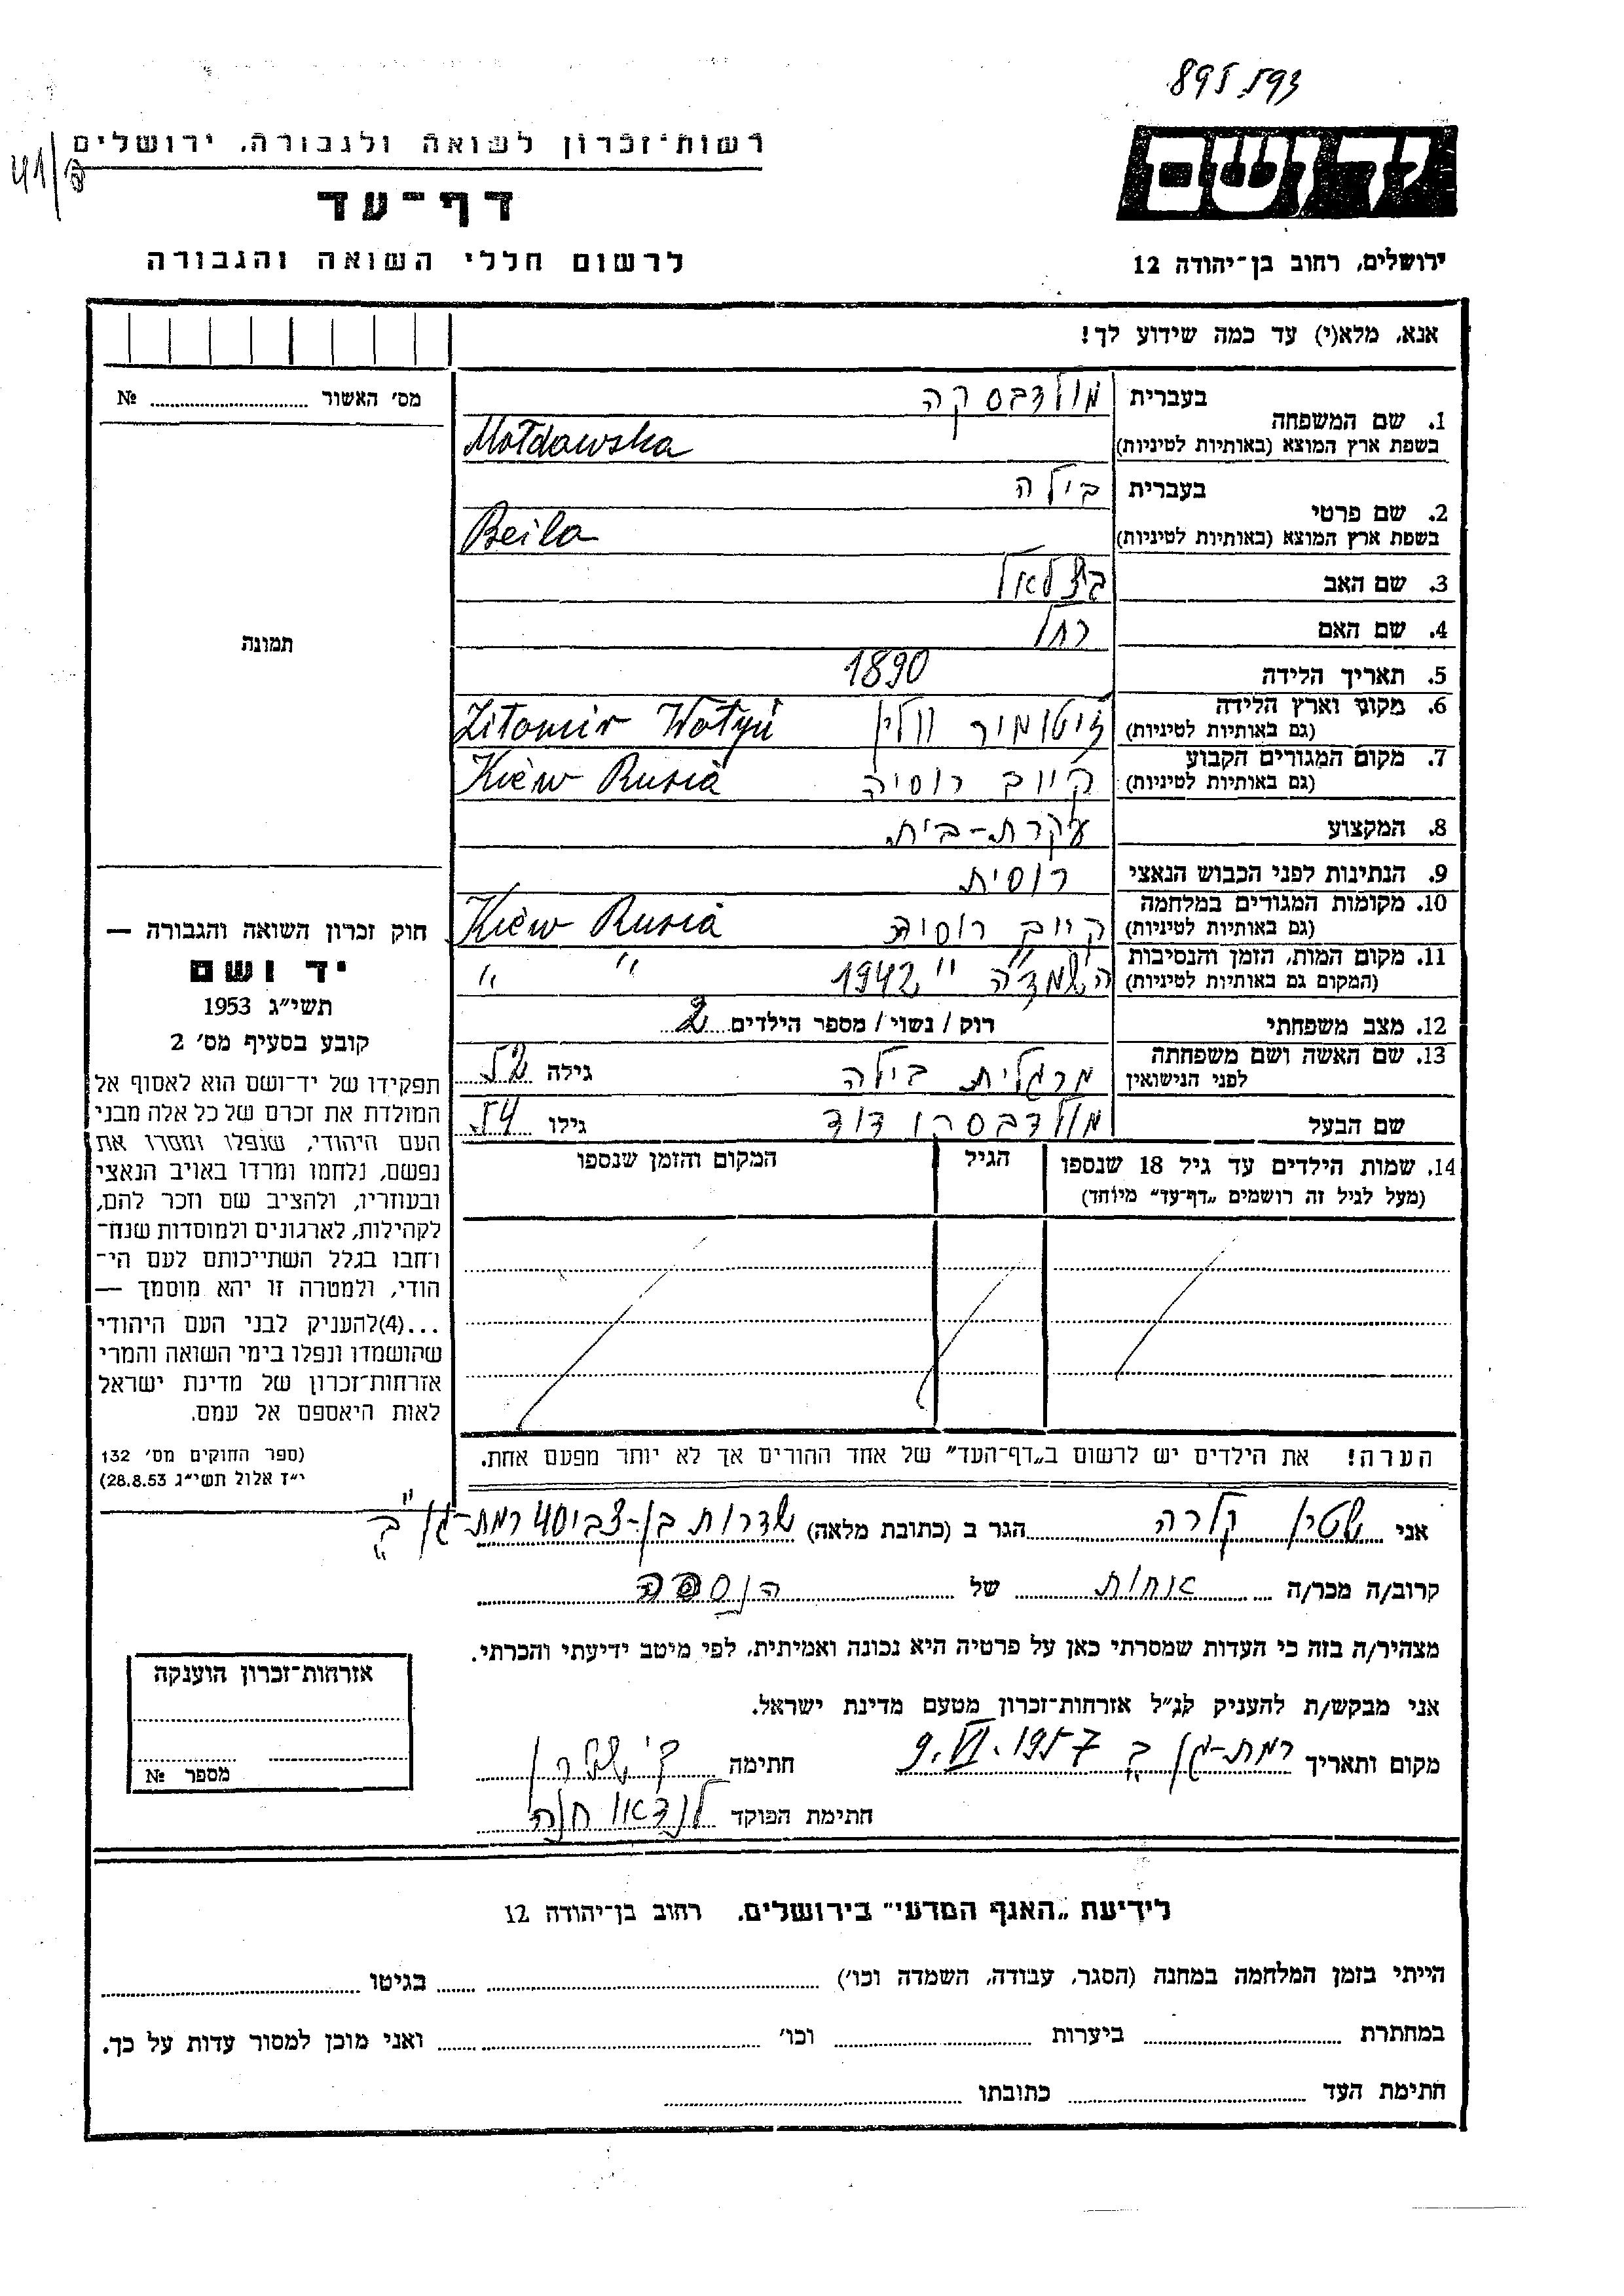 895593
41/ ק
רשות־זכרון לשואה ולגבורה, ירושלים
דף־עד
לרשום חללי השואה והגבורה
יד ושם
ירושלים, רחוב בן־יהודה 12
אנא, מלא(י) עד כמה שידוע לך!
מס׳ האשור № ........
1. שם המשפחה בעברית מולדבסקה
בשפת ארץ המוצא (באותיות לטיניות) Mołdawska
2. שם פרטי בעברית בילה
בשפת ארץ המוצא (באותיות לטיניות) Beila
3. שם האב בצלאל
4. שם האם רחל
תמונה
5. תאריך הלידה 1890
6. מקום וארץ הלידה (גם באותיות לטיניות) ז'יטומיר וולין Zitomir Wołyń
7. מקום המגורים הקבוע (גם באותיות לטיניות) קיוב רוסיה Kiew Rusia
8. המקצוע עקרת-בית
9. הנתינות לפני הכבוש הנאצי רוסית
10. מקומות המגורים במלחמה (גם באותיות לטיניות) קיוב רוסיה Kiew Rusia
11. מקום המות, הזמן והנסיבות (המקום גם באותיות לטיניות) השמדה " 1942 " "
12. מצב משפחתי רוק / נשוי / מספר הילדים 2
13. שם האשה ושם משפחתה לפני הנישואין מרגלית בילה גילה 52
שם הבעל מולדבסקי דוד גילו 54
14. שמות הילדים עד גיל 18 שנספו הגיל המקום והזמן שנספו
(מעל לגיל זה רושמים „דף־עד״ מיוחד)
הערה! את הילדים יש לרשום ב„דף־העד״ של אחד ההורים אך לא יותר מפעם אחת.
חוק זכרון השואה והגבורה —
יד ושם
תשי״ג 1953
קובע בסעיף מס׳ 2
תפקידו של יד־ושם הוא לאסוף אל
המולדת את זכרם של כל אלה מבני
העם היהודי, שנפלו ומסרו את
נפשם, נלחמו ומרדו באויב הנאצי
ובעוזריו, ולהציב שם וזכר להם,
לקהילות, לארגונים ולמוסדות שנח־
רחבו בגלל השתייכותם לעם הי־
הודי, ולמטרה זו יהא מוסמך —
...(4)להעניק לבני העם היהודי
שהושמדו ונפלו בימי השואה והמרי
אזרחות־זכרון של מדינת ישראל
לאות היאספם אל עמם.
(ספר החוקים מס׳ 132
י״ז אלול תשי״ג 28.8.53)
אני שטין קלרה הגר ב (כתובת מלאה) שדרות בן-צבי 40 רמת-גן ב׳
קרוב/ה מכר/ה אחות של הנספה
מצהיר/ה בזה כי העדות שמסרתי כאן על פרטיה היא נכונה ואמיתית, לפי מיטב ידיעתי והכרתי.
אני מבקש/ת להעניק לנ״ל אזרחות־זכרון מטעם מדינת ישראל.
מקום ותאריך רמת-גן ב׳ 9.VI.1957 חתימה
חתימת הפוקד לנדאו חנה
אזרחות־זכרון הוענקה
מספר №
לידיעת „האגף המדעי״ בירושלים, רחוב בן־יהודה 12
הייתי בזמן המלחמה במחנה (הסגר, עבודה, השמדה וכו׳) ........ בגיטו ........
במחתרת ........ ביערות ........ וכו׳ ........ ואני מוכן למסור עדות על כך.
חתימת העד ........ כתובתו ........